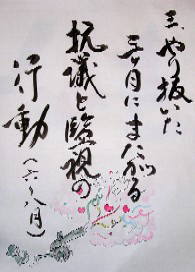 三、やり抜いた
三ヶ月にまたがる
抗議と監視の
行動
(六〜八月)